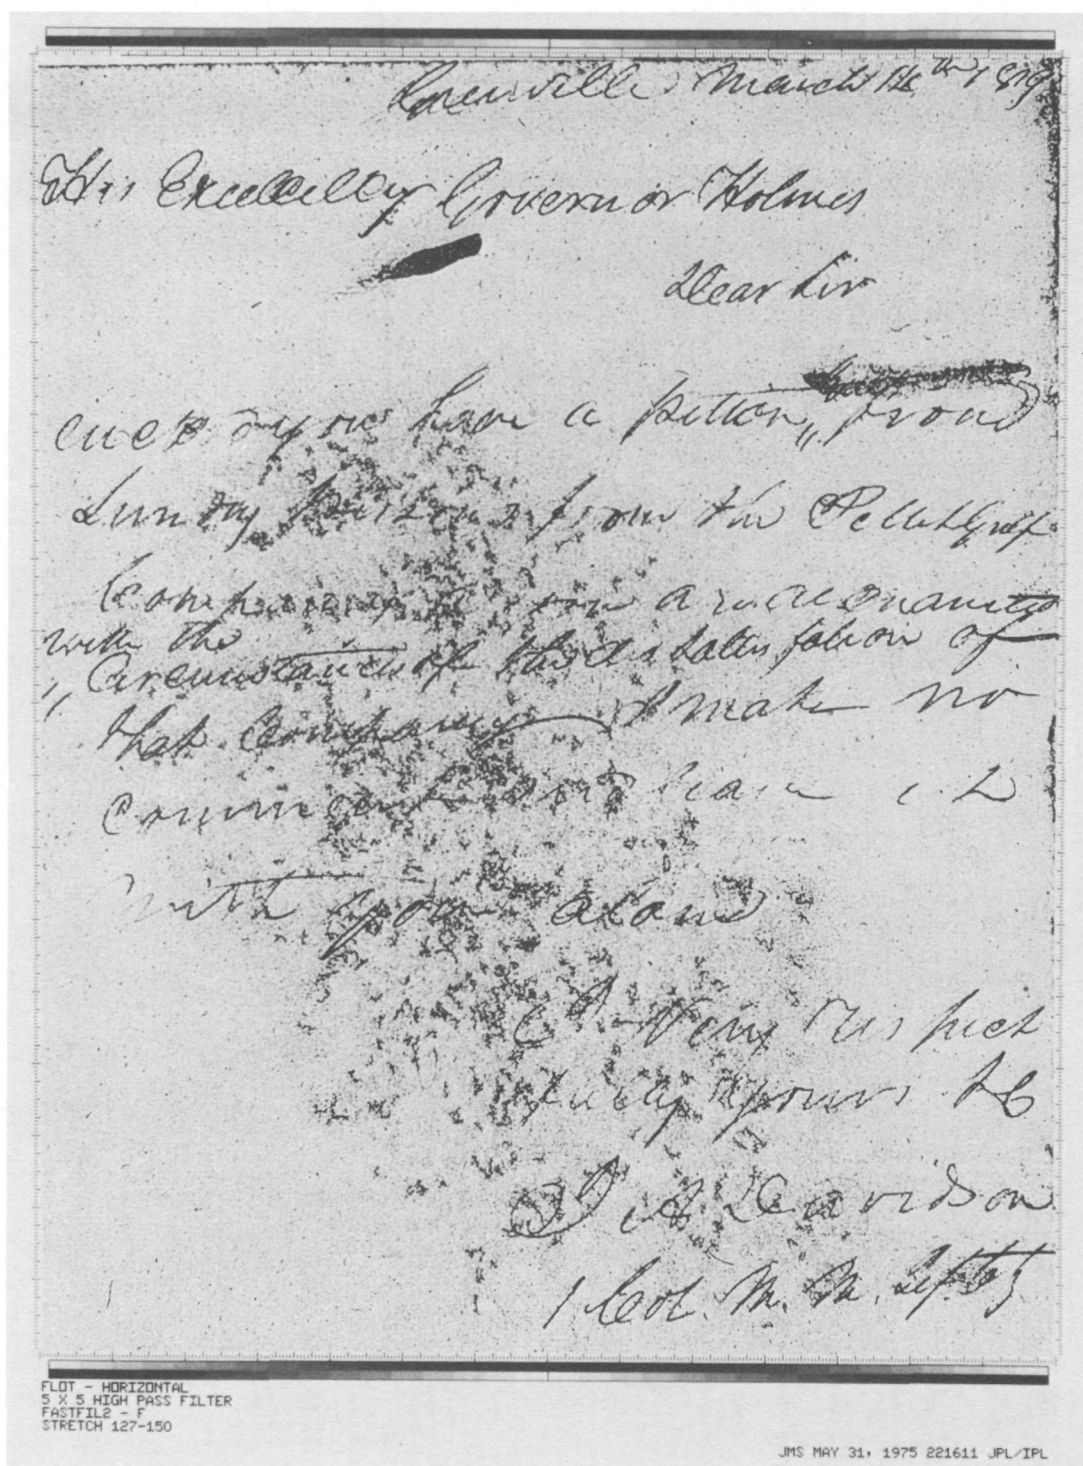 Greenville March 16th 1819
His Excellency Governor Holmes
Dear Sir
you have a petition from
Sundry persons from the Pettit Gulf
Company you are acquainted
with the
Circumstances of the dissatisfaction of
that Company I make no
comment and leave it
with you alone
Very respect
fully yours &C
Davidson
1 Col. M. M.
FLOT - HORIZONTAL
5 X 5 HIGH PASS FILTER
FASTFIL2 - F
STRETCH 127-150
JMS MAY 31, 1975 221611 JPL/IPL